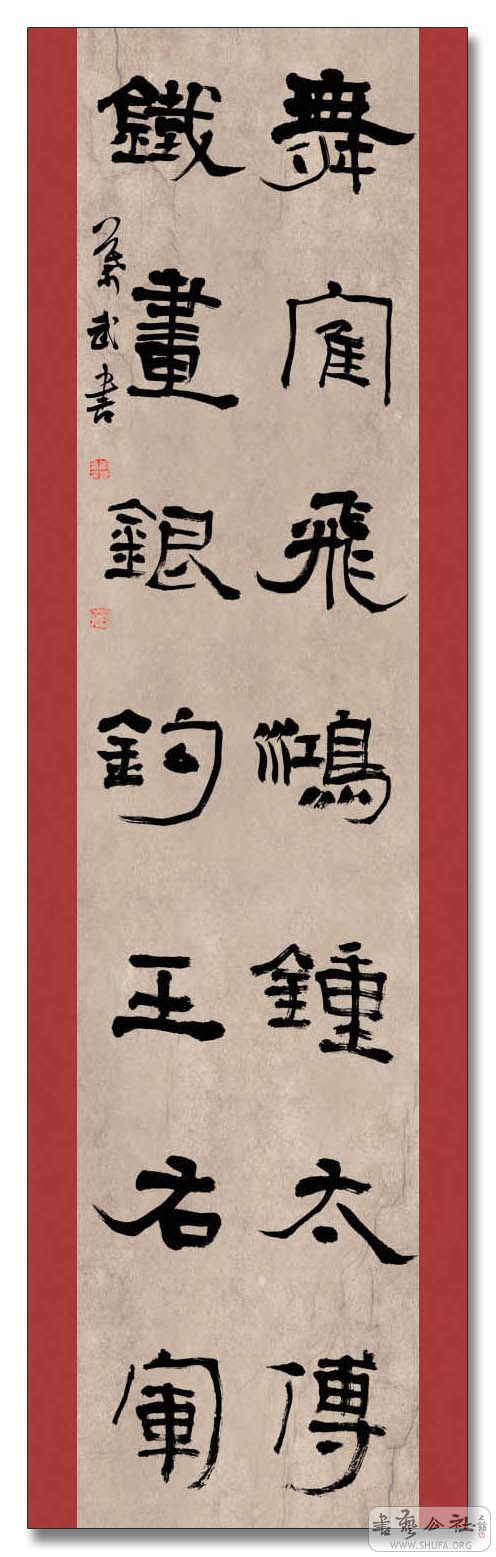 舞寉飛鴻鍾太傅
鐵畫銀鈎王右軍
武書
書藝公社
WWW.SHUFA.ORG